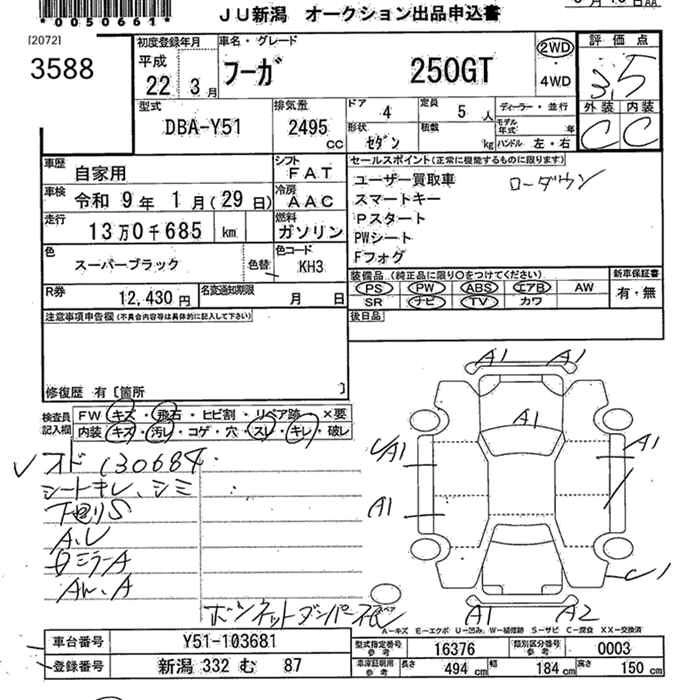 *0050661*
JU新潟 オークション出品申込書
[2072]
3588
初度登録年月
平成
22 3月
車名・グレード
フーガ 250GT
2WD
・
4WD
評価点
3.5
外装 内装
C C
型式
DBA-Y51
排気量
2495 cc
ドア 4
定員 5 人
ディーラー・並行
形状 セダン
積載 kg
モデル年式 年
ハンドル 左・右
車歴 自家用
シフト FAT
車検 令和 9年 1月(29日)
冷房 AAC
走行 13万0千685 km
燃料 ガソリン
色 スーパーブラック
色替
色コード KH3
R券 12,430円
名変通知期限 月 日
セールスポイント(正常に機能するものに限ります)
ユーザー買取車
スマートキー
Pスタート
PWシート
Fフォグ
ローダウン
装備品 (純正品に限り○をつけてください)
PS PW ABS エアB AW
SR ナビ TV カワ
新車保証書
有・無
注意事項申告欄(不具合内容等は具体的に記入して下さい)
後日品
修復歴 有 [箇所 ]
検査員記入欄
FW キズ・飛石・ヒビ割・リペア跡 ×要
内装 キズ・汚レ・コゲ・穴・スレ・キレ・破レ
オド 130684
シートキレ、シミ
下廻りS
A.U
ミラーA
AW.A
ボンネットダンパー
A1 A1
A1
A1 A1
A1
U1
A1 A2
A-キズ E-エクボ U-凹み W-補修跡 S-サビ C-腐食 XX-交換済
車台番号 Y51-103681
登録番号 新潟 332 む 87
型式指定番号 参考 16376
類別区分番号 参考 0003
車庫証明用 参考 長さ 494cm 幅 184cm 高さ 150cm